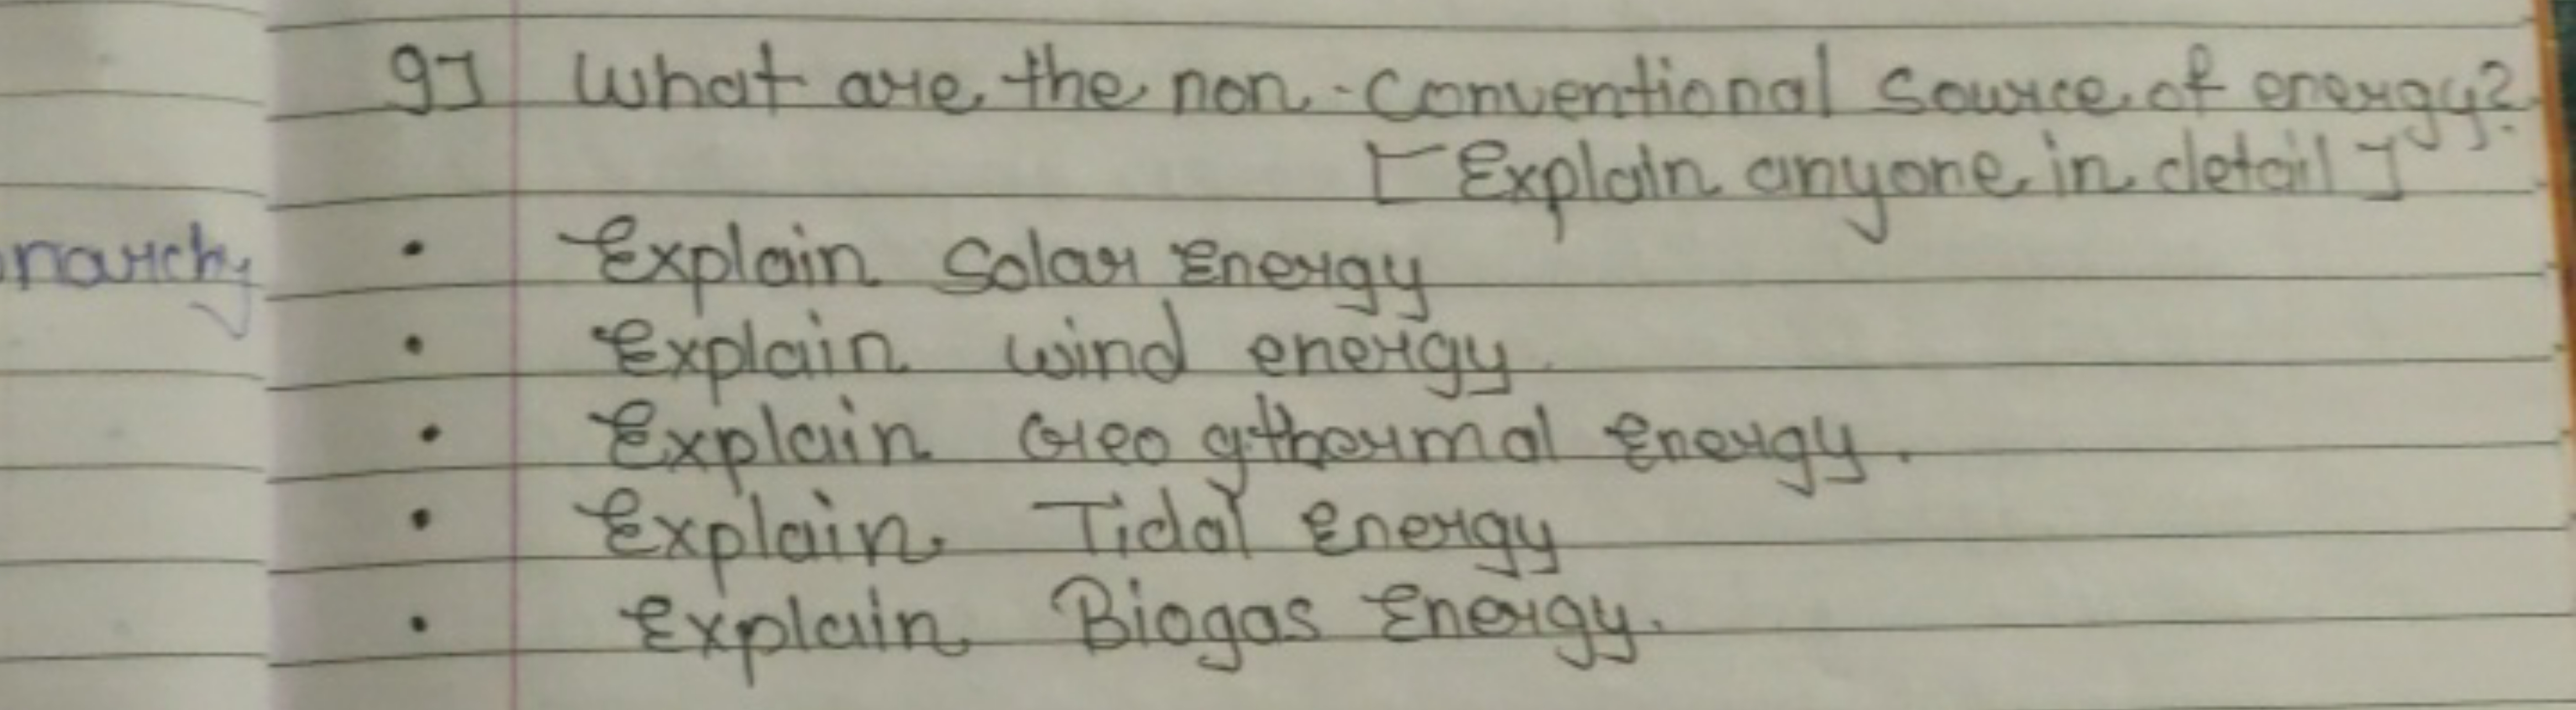 9] What are the non-conventional source of energy?
[Explain anyone in detail]
• Explain Solar Energy
• Explain wind energy.
• Explain Geo gthermal Energy.
• Explain Tidal Energy
• Explain Biogas Energy.